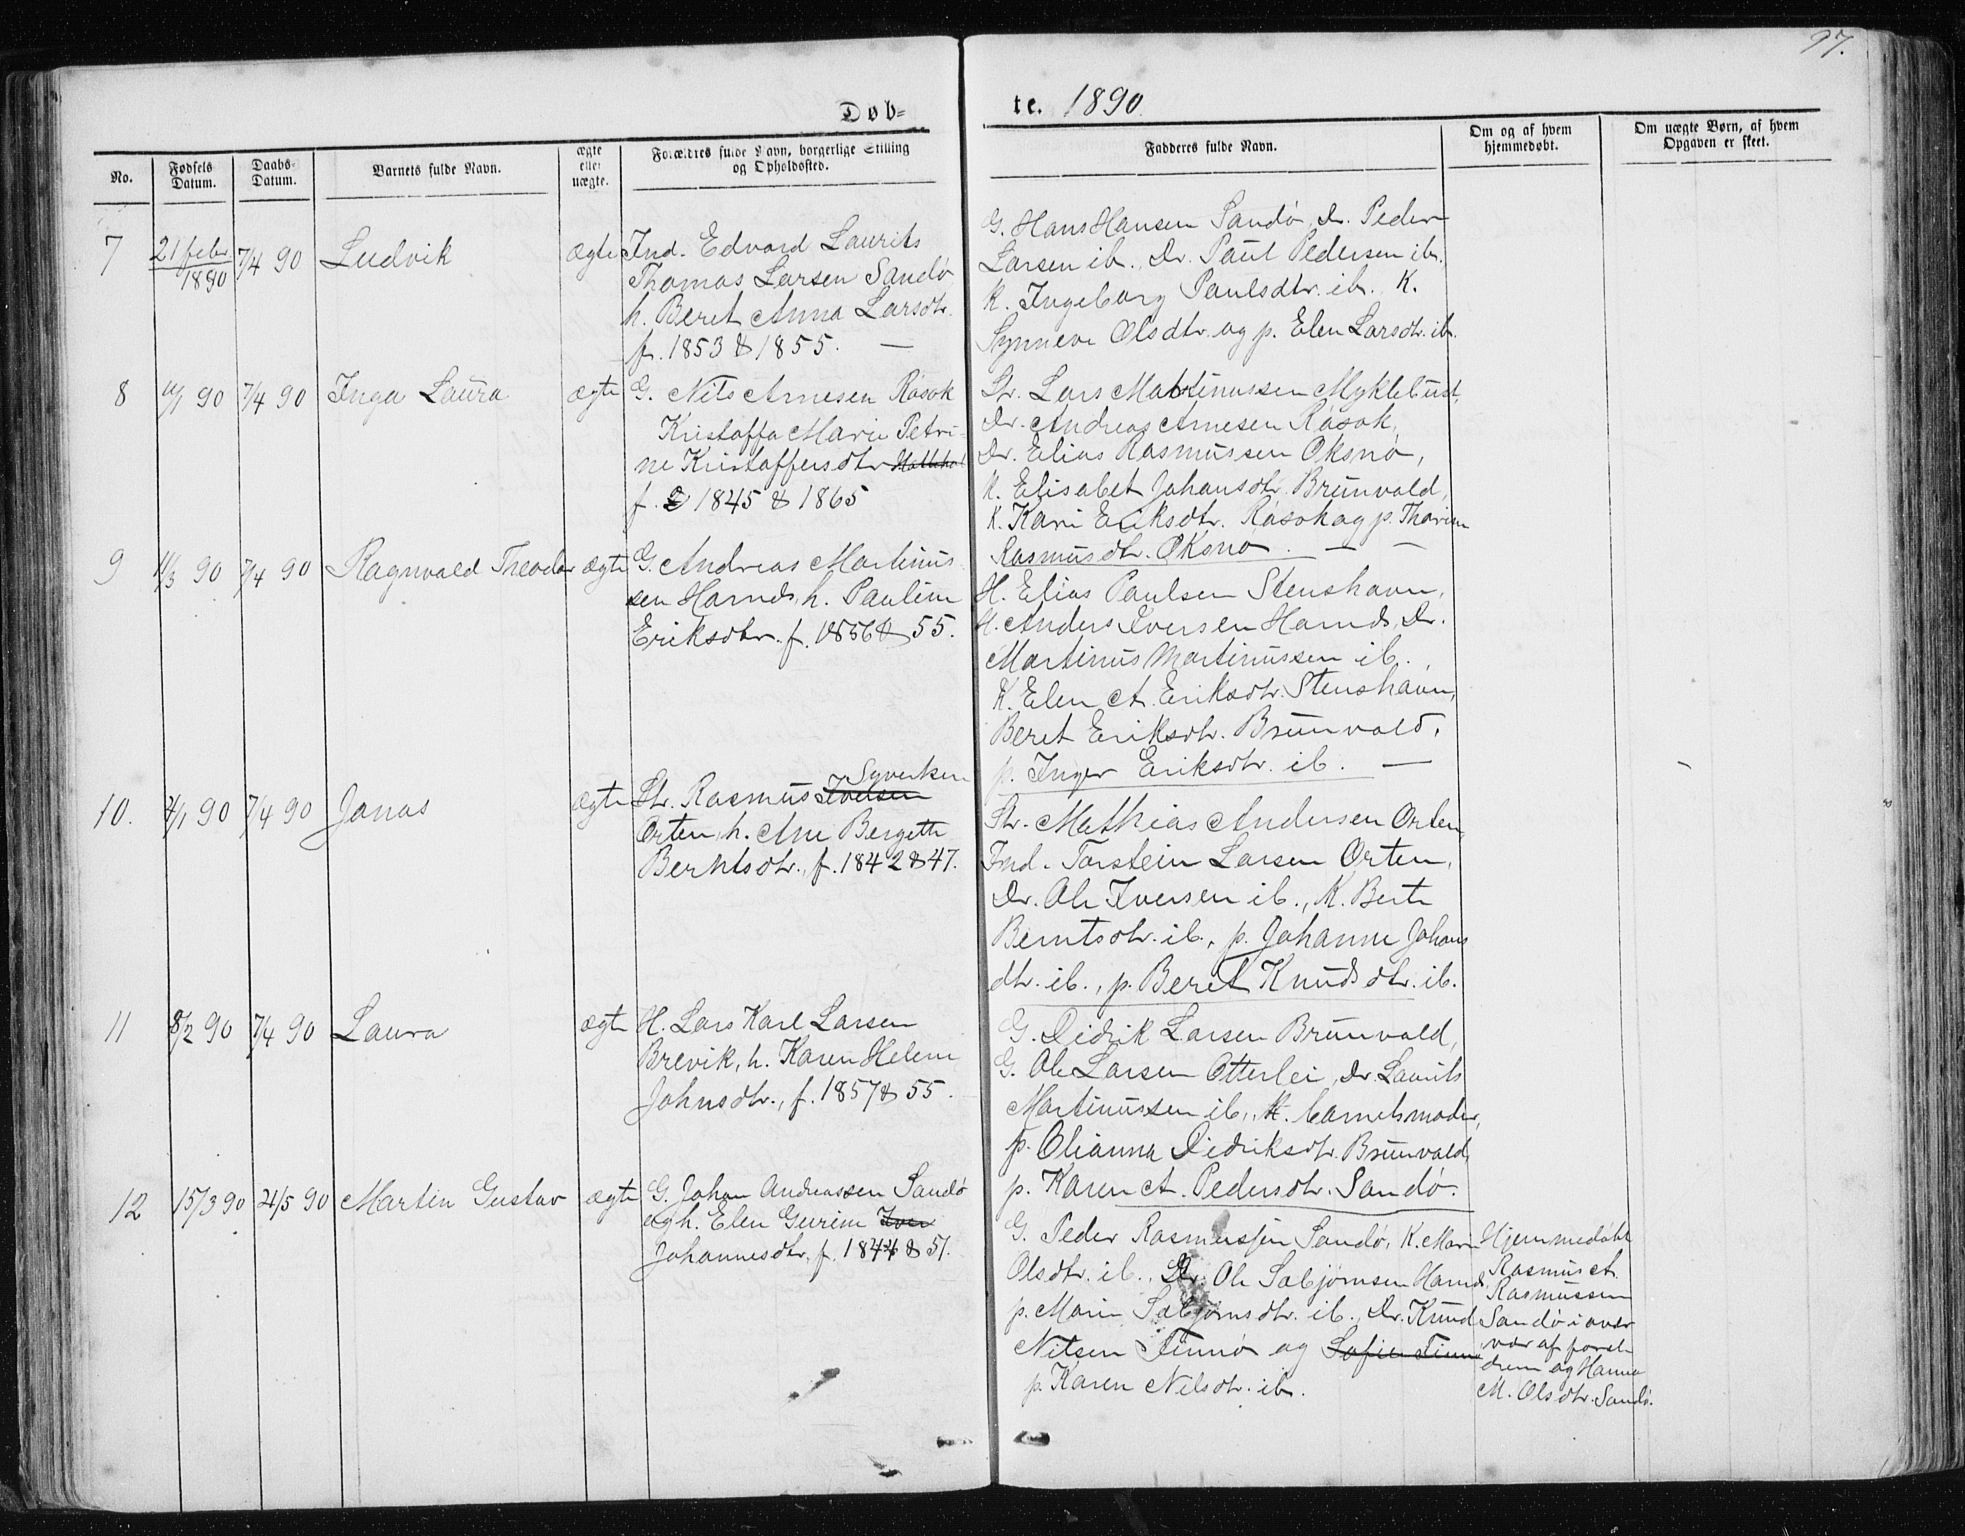 97.
Døb-
te. 1890.
No.
Fødsels Datum.
Daabs-Datum.
Barnets fulde Navn.
ægte eller uægte.
Forældres fulde Navn, borgerlige Stilling
og Opholdssted.
Fadderes fulde Navn.
Om og af hvem
hjemmedøbt.
Om uægte Børn, af hvem
Opgaven er skeet.
7 21 febr 1890 7/4 90 Ludvik ægte Ind. Edvard Laurits
Thomas Larsen Sandø
h. Beret Anna Larsdtr.
f. 1853 & 1855. —
G. Hans Hansen Sandø, Dr. Peder
Larsen ib., Dr. Paul Pedersen ib.
K. Ingeborg Paulsdtr. ib. K.
Synneve Olsdtr. og p. Elen Larsdtr. ib.
8 90 7/4 90 Inga Laura ægte G. Nils Arnesen Råsok
Kristoffa Marie Petri-
ne Kristoffersdtr
f. 1845 & 1865
Str. Lars Martinussen Myklebust,
Dr. Andreas Arnesen Råsok,
Dr. Elias Rasmussen Oksnø,
K. Elisabet Johansdtr. Brunvold,
K. Kari Eriksdtr. Råsok og p. Thorine
Rasmusdtr. Oksnø. — —
9 11/3 90 7/4 90 Ragnvald Theodor ægte G. Andreas Martinus-
sen Harnds, h. Pauline
Eriksdtr. f. 1856 & 55.
H. Elias Paulsen Stenshavn,
H. Anders Iversen Harnds, Dr.
Martinus Martinussen ib.,
K. Elen A. Eriksdtr. Stenshavn,
Beret Eriksdtr. Brunvold,
p. Inger Eriksdtr. ib. —
10. 4/1 90 7/4 90 Jonas ægte Str. Rasmus Iversen Syvertsen
Orten, h. Ane Bergette
Berntsdtr., f. 1842 & 47.
Str. Mathias Andersen Orten,
Ind. Torstein Larsen Orten,
Dr. Ole Iversen ib., K. Berte
Berntsdtr. ib., p. Johanne Johans
dtr. ib., p. Beret Knudsdtr. ib.
11 8/2 90 7/4 90 Laura ægte H. Lars Karl Larsen
Brevik, h. Karen Helene
Johnsdtr., f. 1857 & 55.
G. Didrik Larsen Brunvold,
G. Ole Larsen Otterlei, Dr. Laurits
Martinussen ib., K. barnets moder,
p. Olianna Didriksdtr. Brunvold,
p. Karen A. Pedersdtr. Sandø.
12 15/3 90 21/5 90 Martin Gustav ægte G. Johan Andreassen Sandø
og h. Elen Gurine Iver
Johannesdtr. f. 1844 & 51.
G. Peder Rasmussen Sandø, K. Marie
Olsdtr. ib., Dr. Ole Sæbjørnsen Harnds,
p. Marie Sæbjørnsdtr. ib., Dr. Knud
Nilsen Finnø og Sofie Finnø
p. Karen Nilsdtr. ib.
Hjemmedøbt
Rasmus A.
Rasmussen
Sandø i over
vær af forel-
drene og Hanna
M. Olsdtr. Sandø.